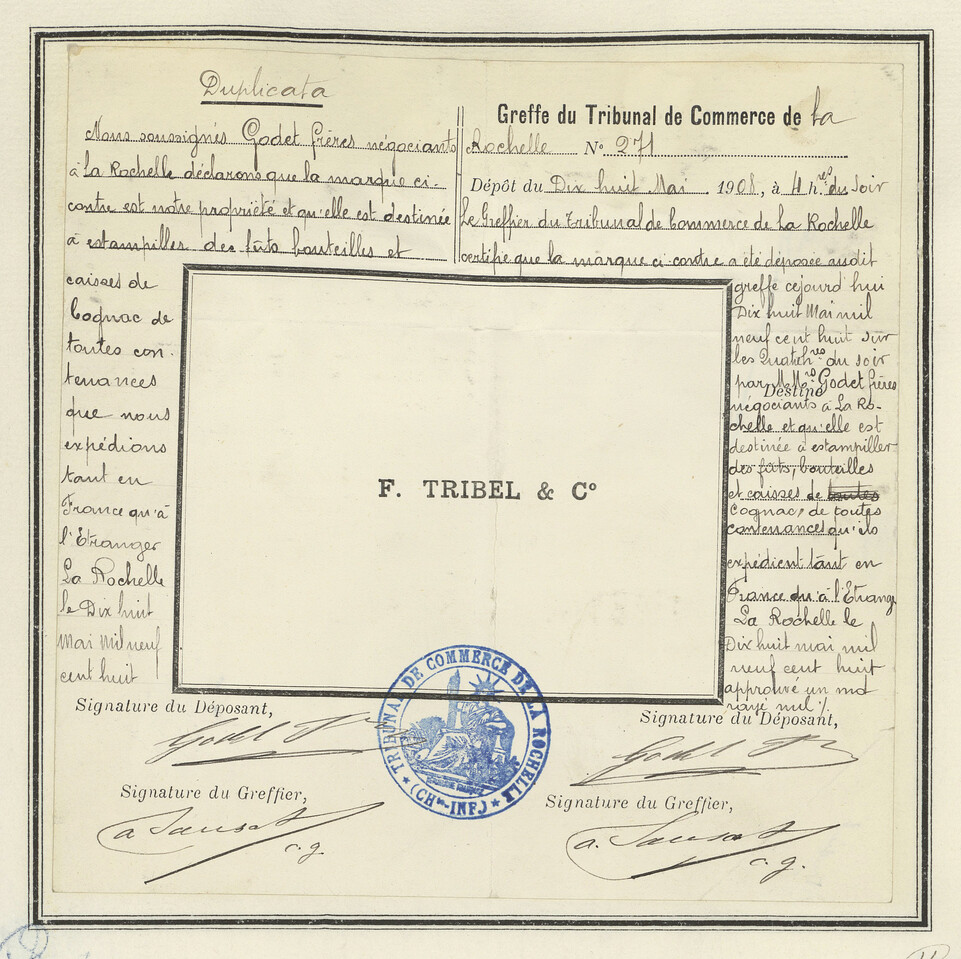 Duplicata
Nous soussignés Godet frères négociants
à La Rochelle déclarons que la marque ci-
contre est notre propriété et qu'elle est destinée
à estampiller des fûts bouteilles et
caisses de
Cognac de
toutes con-
tenances
que nous
expédions
tant en
France qu'à
l'Etranger
La Rochelle
le Dix huit
Mai mil neuf
cent huit
Signature du Déposant,
Godet Fr
Signature du Greffier,
c. g.
Greffe du Tribunal de Commerce de La
Rochelle N° 271
Dépôt du Dix huit Mai 1908, à 4 hres du soir
Le Greffier du Tribunal de Commerce de La Rochelle
certifie que la marque ci-contre a été déposée audit
greffe cejourd'hui
Dix huit Mai mil
neuf cent huit sur
les Quatre hres du soir
par MMrs Godet frères
Destiné
négociants à La Ro-
chelle et qu'elle est
destinée à estampiller
des fûts, bouteilles
et caisses de toutes
Cognac, de toutes
contenances qu'ils
expédient tant en
France qu'à l'Etrange
La Rochelle le
Dix huit mai mil
neuf cent huit
approuvé un mot
rayé nul /.
Signature du Déposant,
Godet Fr
Signature du Greffier,
c. g.
F. TRIBEL & Co
TRIBUNAL DE COMMERCE DE LA ROCHELLE
(CHte-INF.)